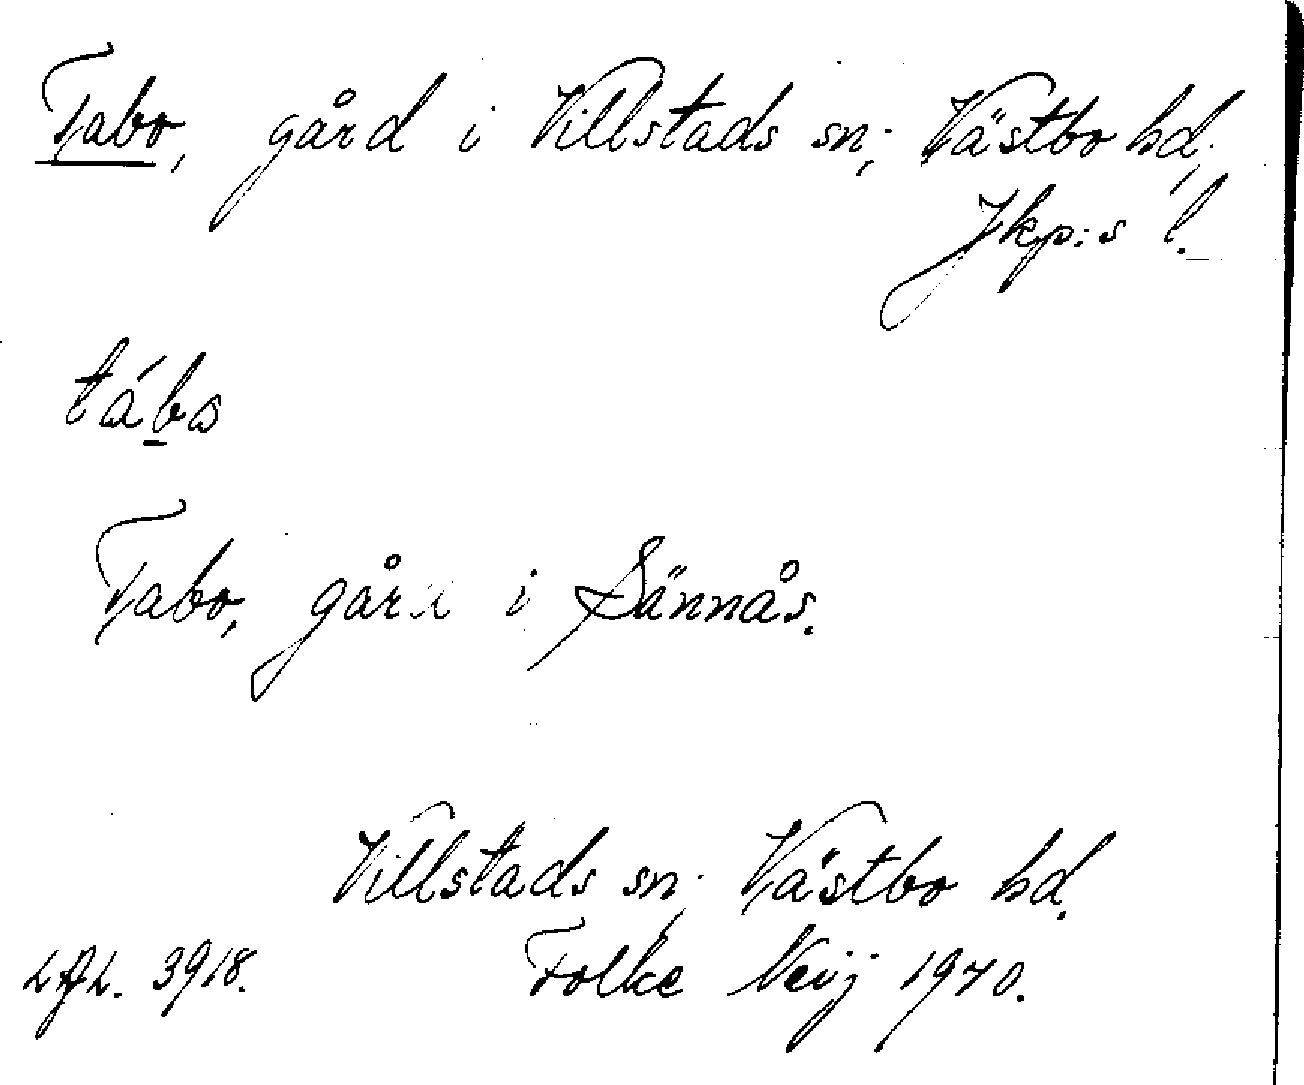 Tabo, gård i Villstads sn; Västbo hd,
Jkp:s l.
Tabo, gård i Sännås.
Villstads sn; Västbo hd.
3918. Folke Neij 1970.